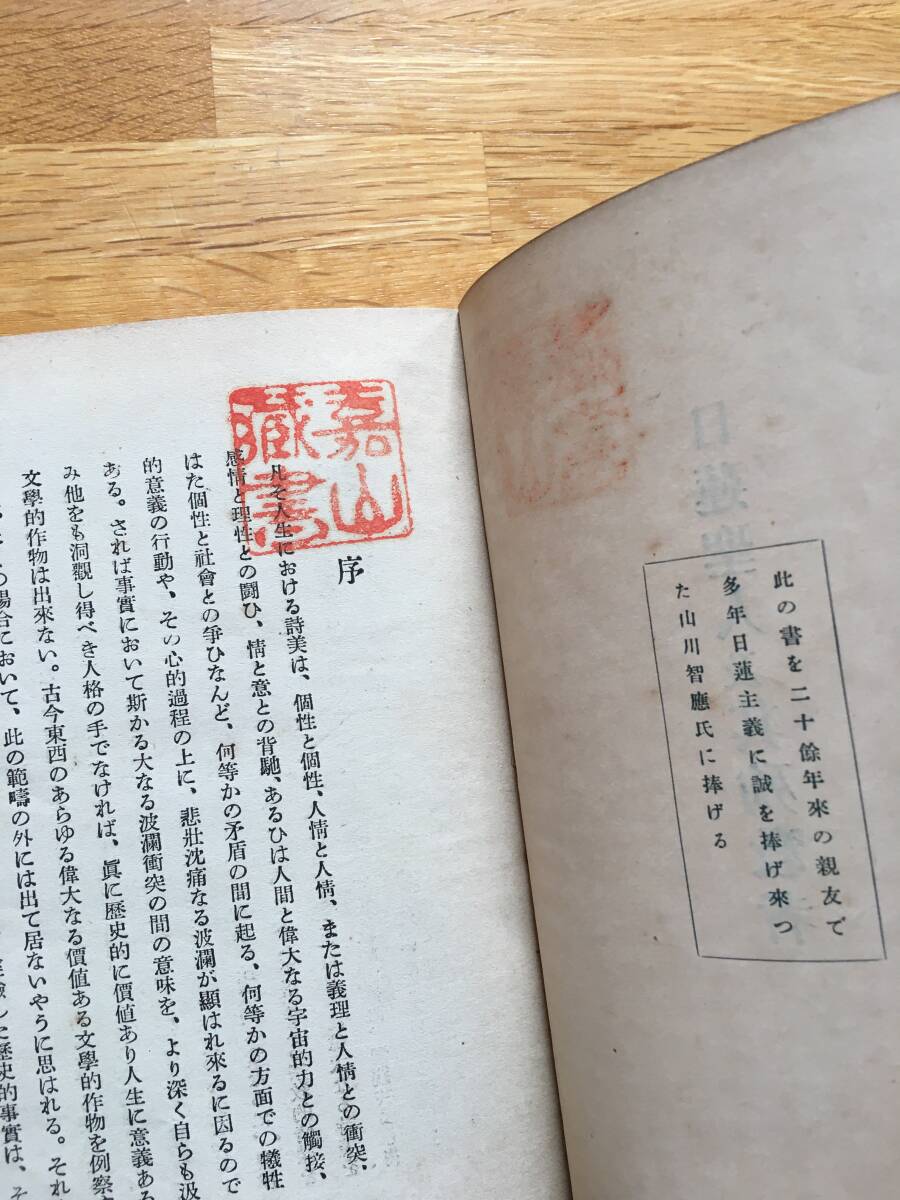 此の書を二十餘年來の親友で
多年日蓮主義に誠を捧げ來つ
た山川智應氏に捧げる
日蓮聖
嘉山
藏書
序
凡そ人生における詩美は、個性と個性、人情と人情、または義理と人情との衝突、
感情と理性との鬪ひ、情と意との背馳、あるひは人間と偉大なる宇宙的力との觸接、
はた個性と社會との爭ひなんど、何等かの矛盾の間に起る、何等かの方面での犧牲
的意義の行動や、その心的過程の上に、悲壯沈痛なる波瀾が顯はれ來るに因るので
ある。されば事實において斯かる大なる波瀾衝突の間の意味を、より深く自らも汲
み他をも洞觀し得べき人格の手でなければ、眞に歷史的に價値あり人生に意義ある
文學的作物は出來ない。古今東西のあらゆる偉大なる價値ある文學的作物を例察
の場合において、此の範疇の外には出て居ないやうに思はれる。それ
した歷史的事實は、そ